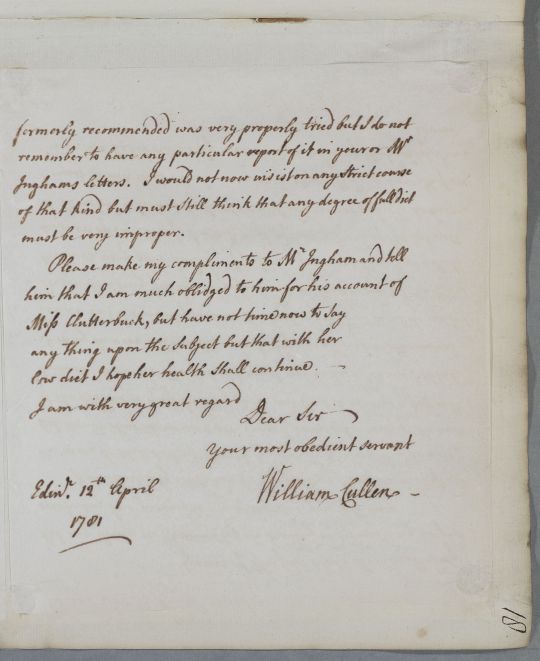 formerly recommended was very properly tried but I do not
remember to have any particular report of it in your or Mr
Inghams letters. I would not now insist on any strict course
of that kind but must still think that any degree of full diet
must be very improper.
Please make my compliments to Mr Ingham and tell
him that I am much oblidged to him for his account of
Miss Clutterbuck, but have not time now to say
any thing upon the subject but that with her
low diet I hope her health shall continue. —
I am with very great regard
Dear Sir
Your most obedient servant
William Cullen —
Edinr. 12th April
1781
81